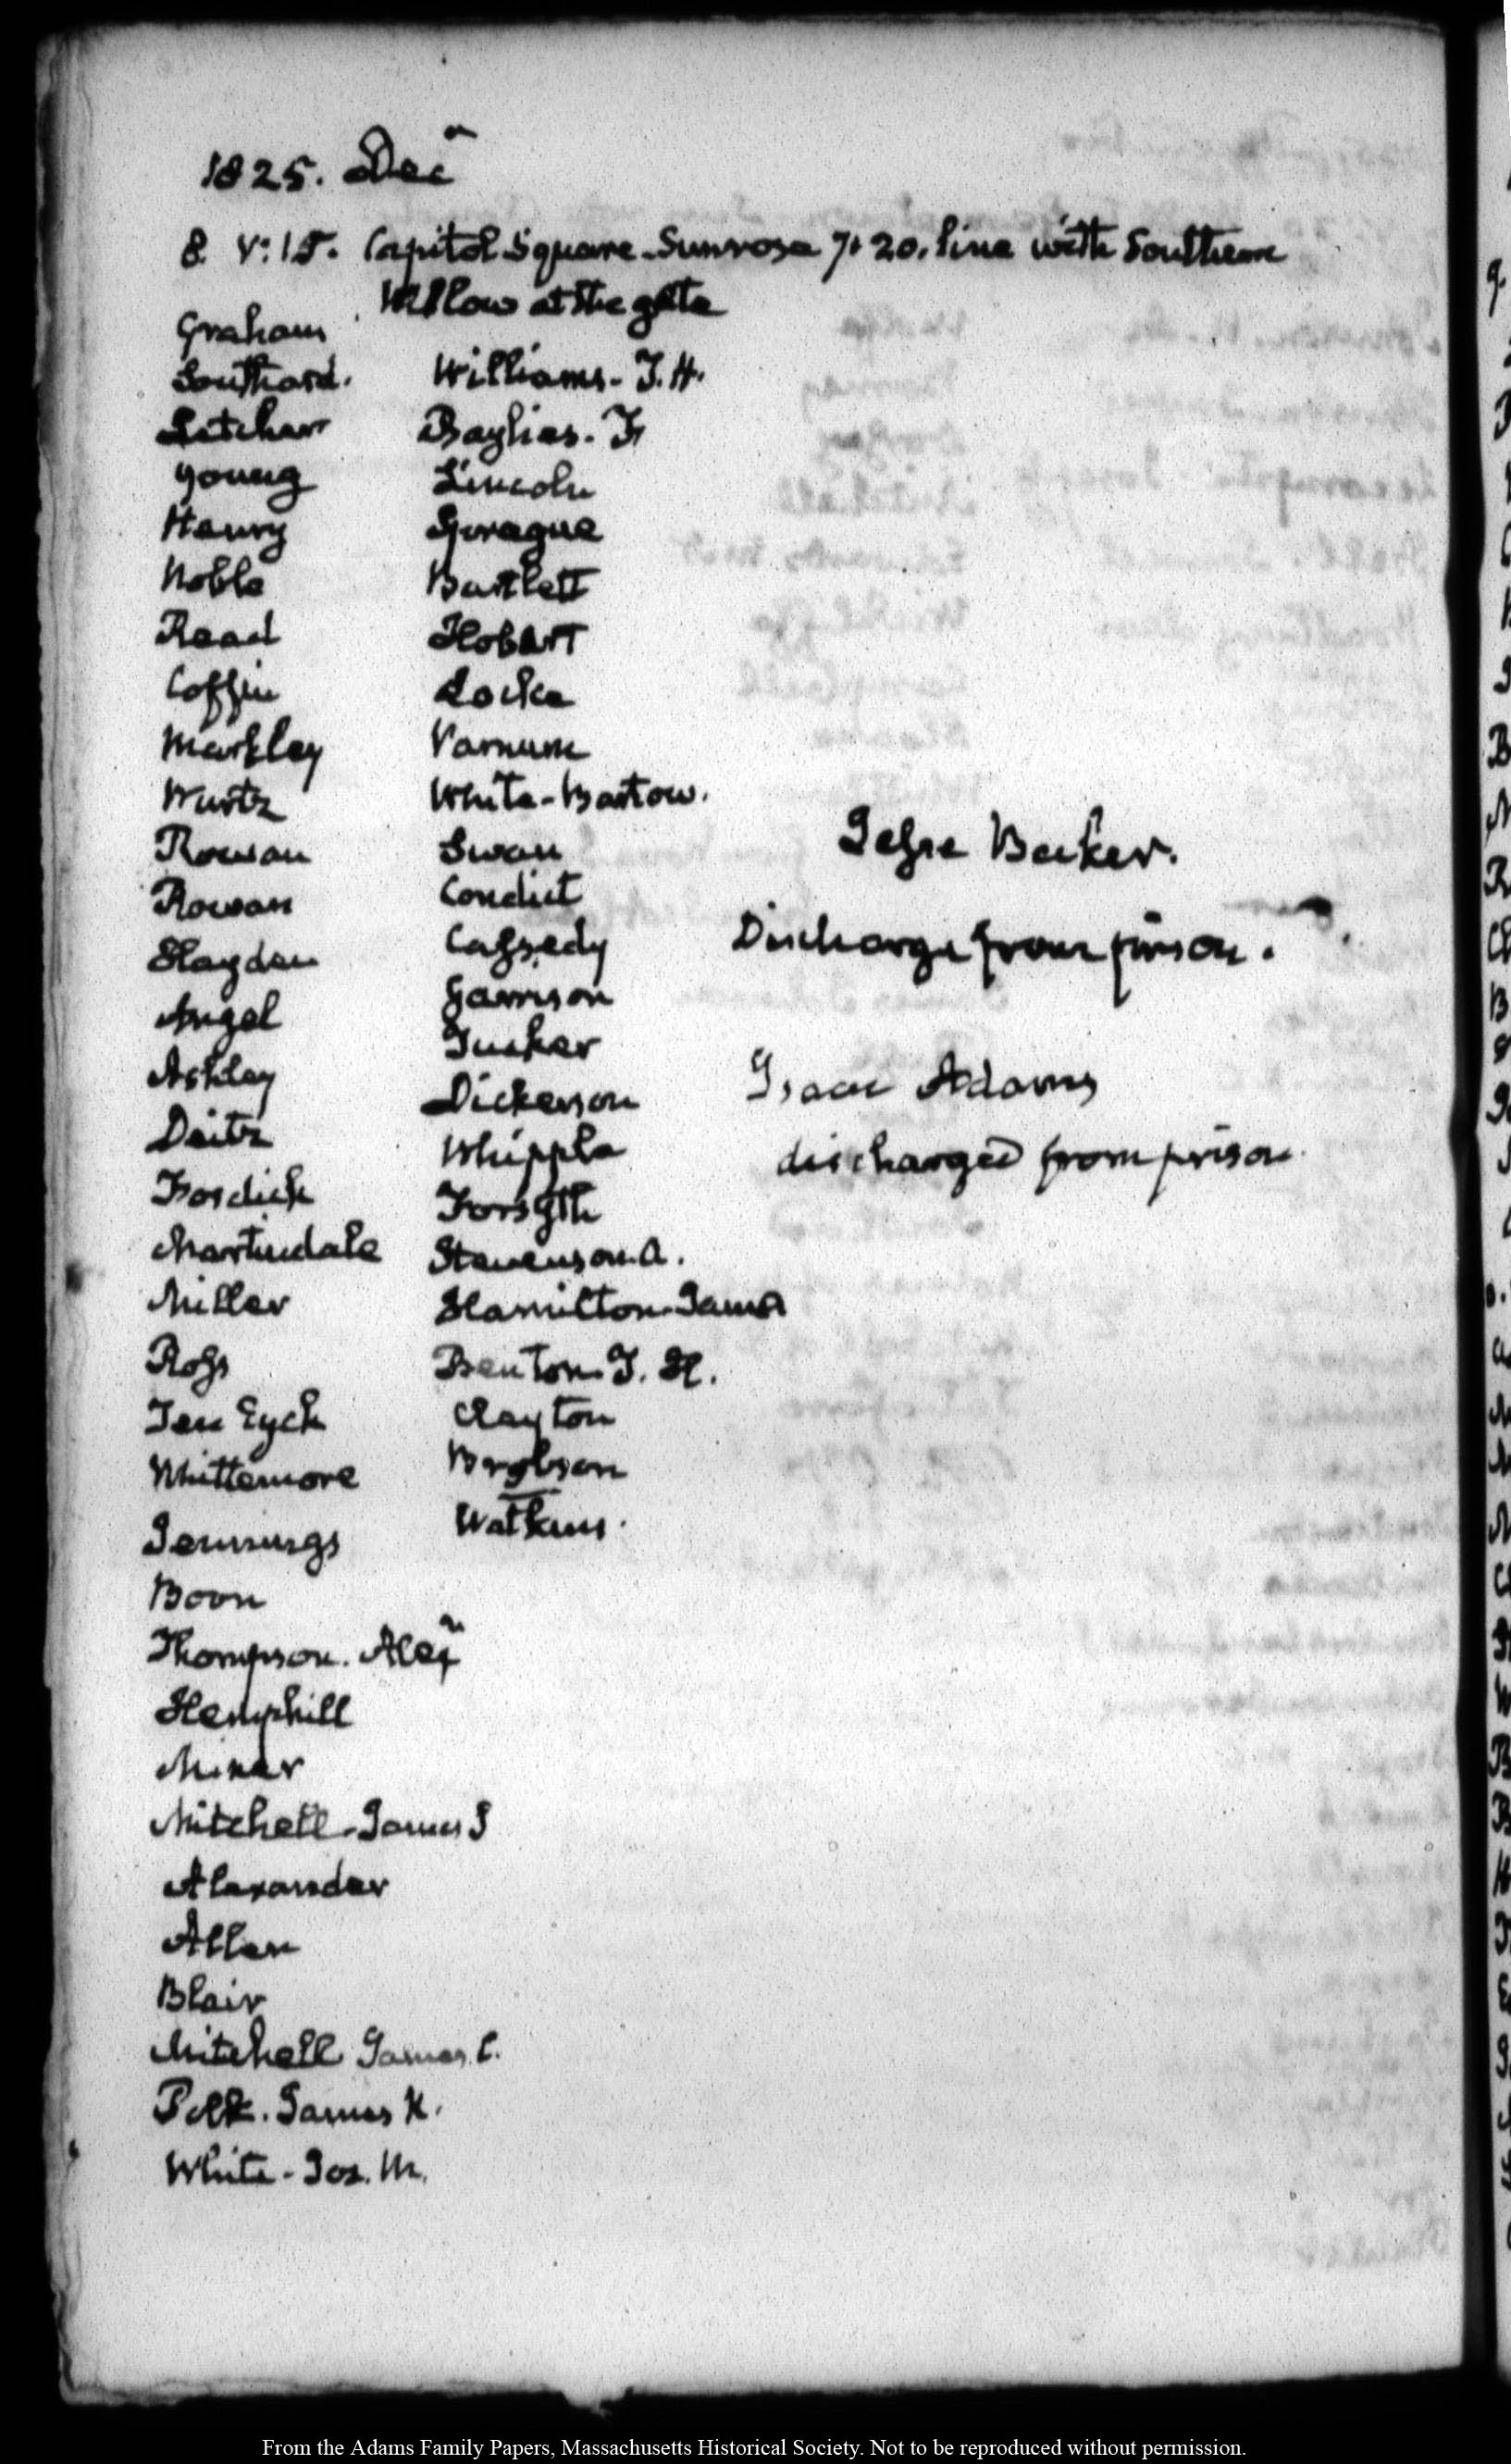 1825. Decr
8. V:15. Capitol Square. Sunrose 7: 20. line with Southern
Willow at the gate
Graham
Southard.
Letcher
Young
Henry
Noble
Read
Coffin
Markley
Wurtz
Rowan
Rowan
Hayden
Angel
Ashley
Deitz
Fosdick
Martindale
Miller
Ross
Ten Eyck
Whittemore
Jennings
Boon
Thompson. Alexr
Hemphill
Miner
Mitchell-James S
Alexander
Allen
Blair
Mitchell James C.
Polk. James K.
White-Jos. M.
Williams-T.H.
Baylies. F
Lincoln
Sprague
Bartlett
Hobart
Locke
Varnum
White-Bartow.
Swan
Condict
Cassedy
Garrison
Tucker
Dickerson
Whipple
Forsyth
Stevenson. A.
Hamilton-James
Benton. T. H.
Clayton
Brobson
Watkins.
Jesse Becker.
Discharge from prison.
Isaac Adams
discharged from prison
From the Adams Family Papers, Massachusetts Historical Society. Not to be reproduced without permission.